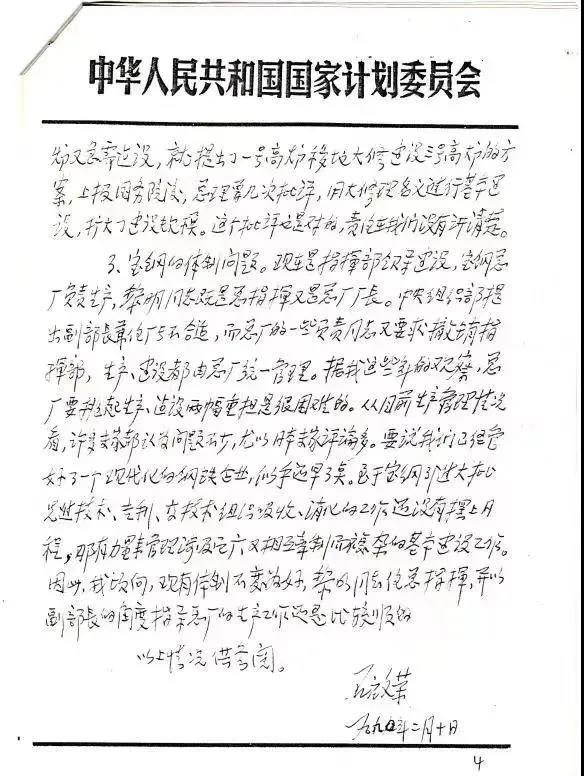 中华人民共和国国家计划委员会
炉又急需建设，就提出了一号高炉移地大修建设三号高炉的方
案，上报国务院后，总理第几次批评，用大修理名义进行基本建
设，扩大了建设规模。这个批评是对的，责任在我们没有讲清楚。
3、宝钢的体制问题。现在是指挥部领导建设，宝钢总
厂负责生产，黎明同志既是总指挥又是总厂厂长。中央组织部提
出副部长兼任厂长不合适，而总厂的一些负责同志又要求撤销指
挥部，生产、建设都由总厂统一管理。据我这些年的观察，总
厂要挑起生产、建设两幅重担是很困难的。从目前生产管理情况
看，许多专家都认为问题不少，尤以日本专家评论多。要说我们已经管
好了一个现代化的钢铁企业，似乎还早了点。至于宝钢引进大批
先进技术、专利、在技术组织吸收、消化的工作还没有摆上日
程，那有力量来管理涉及面广又相互牵制而复杂的基本建设工作。
因此，我倾向，现有体制不变为好，黎明同志任总指挥，并以
副部长的角度指导总厂的生产工作还是比较顺的
以上情况供参阅。
一九九〇年二月十日
4